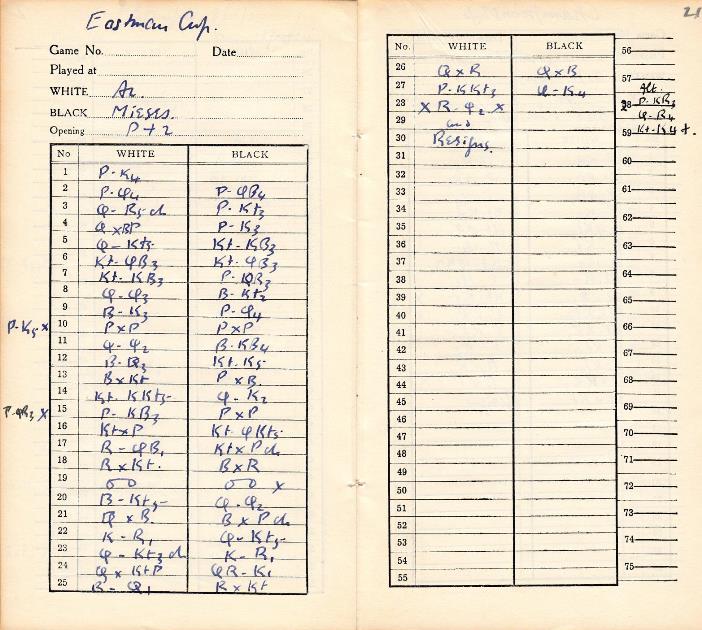 Eastman Cup.
Game No. Date
Played at
WHITE Az.
BLACK Mieses.
Opening P+2
No WHITE BLACK
1 P-K4
2 P-Q4 P-QB4
3 Q-R5-ch P-Kt3
4 Q x BP P-K3
5 Q-Kt5- Kt-KB3
6 Kt-QB3 Kt-QB3
7 Kt-KB3 P-QR3
8 Q-Q3 B-Kt2
9 B-K3 P-Q4
P-K5 x 10 P x P P x P
11 Q-Q2 B-KB4
12 B-Q3 Kt-K5
13 B x Kt P x B.
14 Kt-KKt5- Q-K2
P-QR3 x 15 P-KB3 P x P
16 Kt x P Kt-QKt5-
17 R-QB1 Kt x P ch
18 R x Kt. B x R
19 OO OO x
20 B-Kt5- Q-Q2
21 Q x B. B x P ch
22 K-R1 Q-Kt5-
23 Q-Kt3 ch K-R1
24 Q x KtP QR-K1
25 R-Q1 R x Kt
21
No. WHITE BLACK
26 Q x R Q x B
27 P-KKt3 Q-K4
28 x R-Q2 x
29 and
30 Resigns.
31
32
33
34
35
36
37
38
39
40
41
42
43
44
45
46
47
48
49
50
51
52
53
54
55
56
57 Alt.
28 P-KR3
Q-R4
59 Kt-K4 +.
60
61
62
63
64
65
66
67
68
69
70
71
72
73
74
75